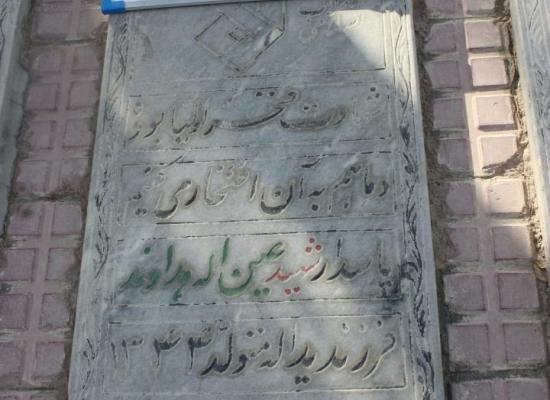 شهادت فخر اولیا بود
و ما هم به آن افتخار می کنیم
پاسدار شهید عین اله هداوند
فرزند یداله متولد ۱۳۴۳